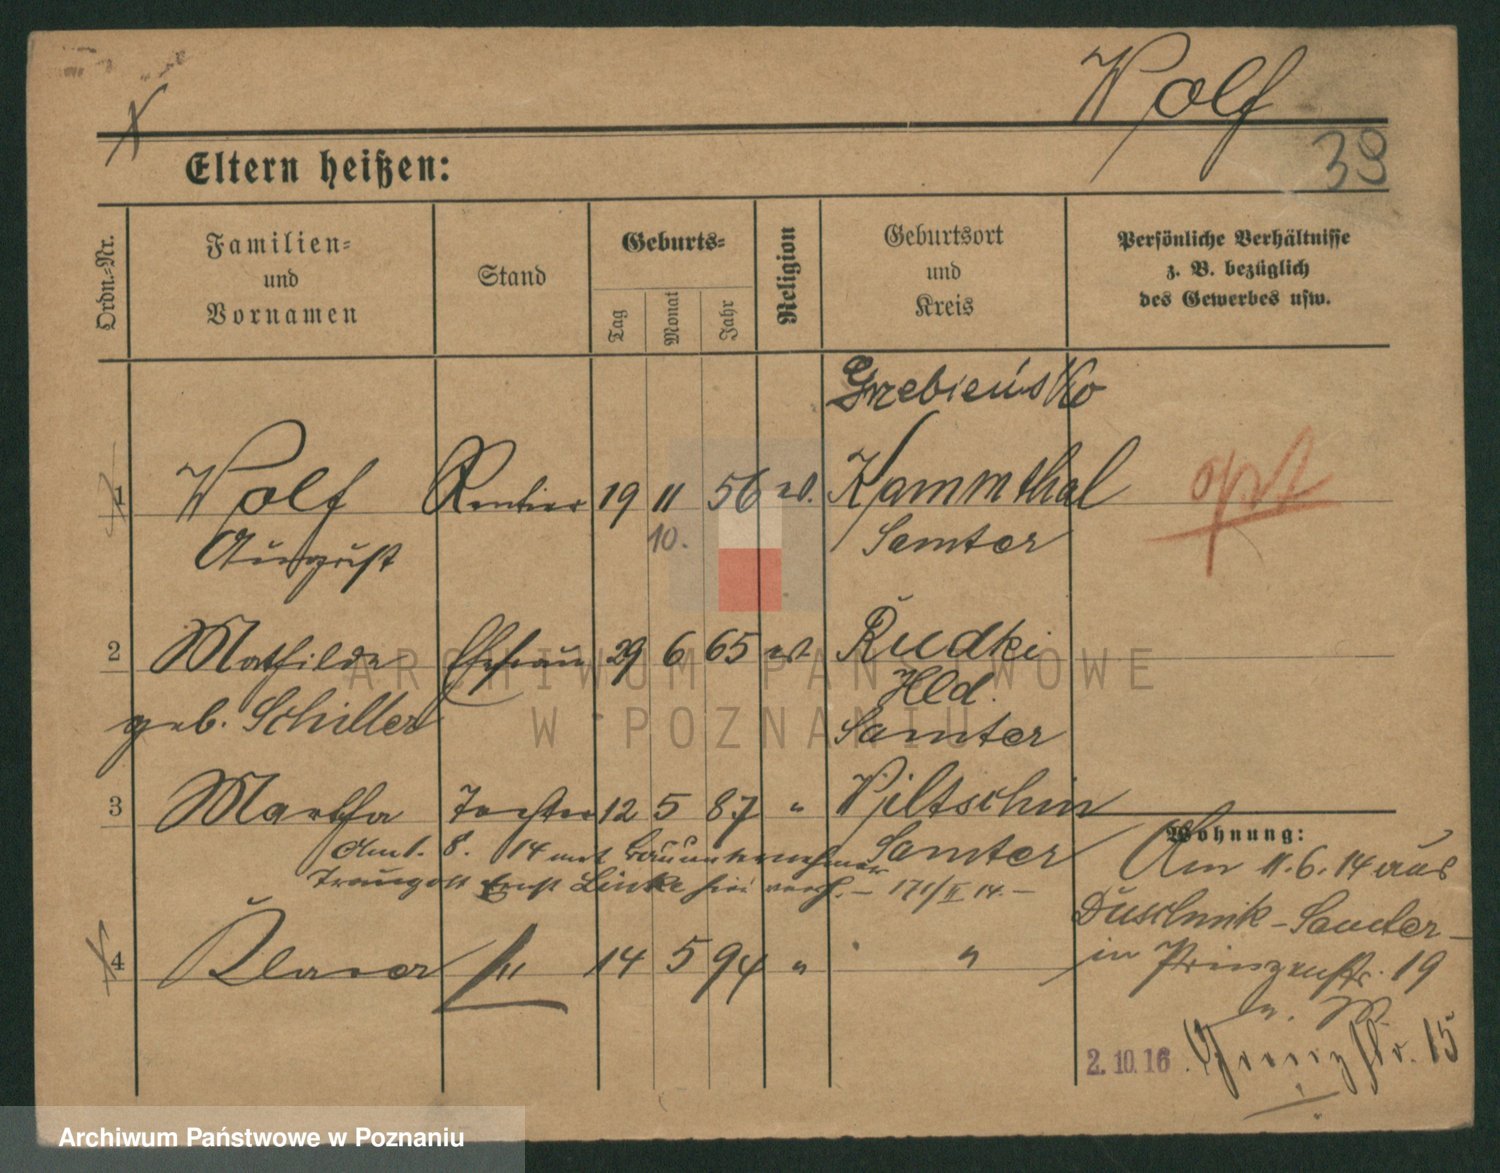 Wolf
38
Eltern heißen:
Ordn.-Nr.
Familien-
und
Vornamen
Stand
Geburts-
Tag
Monat
Jahr
Religion
Geburtsort
und
Kreis
Persönliche Verhältnisse
z. B. bezüglich
des Gewerbes usw.
Grzebieńsko
1 Wolf Rentier 19 11 56 ev. Kammthal opt
August 10. Samter
2 Mathilde Ehefrau 29 6 65 ev. Rudki
Hld.
geb. Schiller Samter
3 Martha Tochter 12 5 87 " Piltschin
Wohnung:
8. 14 mit Bauunternehmer Samter
Traugott Ernst Linke hier verh. – 171/II 14. –
Am 11.6.14 aus
Duschnik-Samter-
in Prinzenstr. 19
4 Klara " 14 5 94 " "
2.10.16. 15
ARCHIWUM PAŃSTWOWE
W POZNANIU
Archiwum Państwowe w Poznaniu